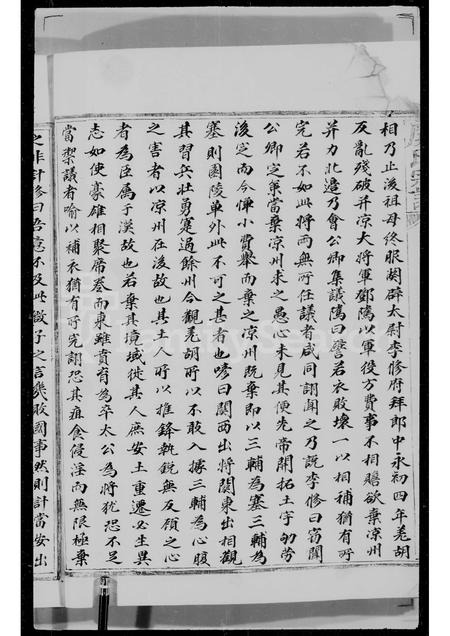 相乃止後祖母終服闋辟太尉李修府拜郎中永初四年羗胡
反亂殘破并凉大將軍鄧隲以軍役方費事不相贍欲棄凉州
并力北邉乃會公卿集議隲曰譬若衣敗壞一以相補猶有所
完若不如此將兩無所任議者咸同詡聞之乃説李修曰竊聞
公卿定策當棄凉州求之愚心未見其便先帝開拓土宇劬勞
後定而今憚小費舉而棄之凉州既棄即以三輔為塞三輔為
塞則園陵单外此不可之甚者也喭曰關西出將關東出相觀
其習兵壯勇寔過餘州今觀羗胡所以不敢入據三輔為心腹
之害者以凉州在後故也其土人所以推鋒執銳無反顧之心
者為臣屬于漢故也若棄其境域徙其人庶安土重遷必生異
志如使豪雄相聚席卷而東雖賁育為卒太公為將犹恐不足
當禦議者喻以補衣猶有所完詡恐其疽食侵淫而無限極棄
之非計修曰吾意不及此微子之言幾敗國事然則計當安出